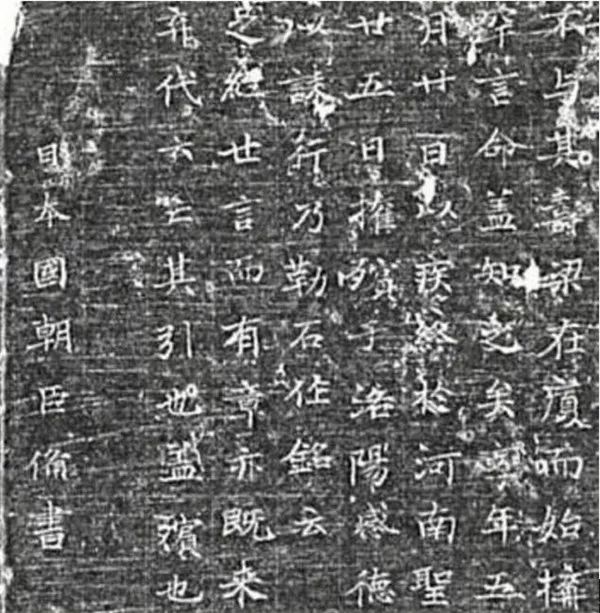 不与其壽梁在厦而始搆
罕言命盖知之矣享年五
月廿日以疾終於河南聖
廿五日權殯于洛陽感德
以誄行乃勒石作銘云
足經世言而有章亦既来
弃代云亡其引也盖殯也
日本國朝臣備書